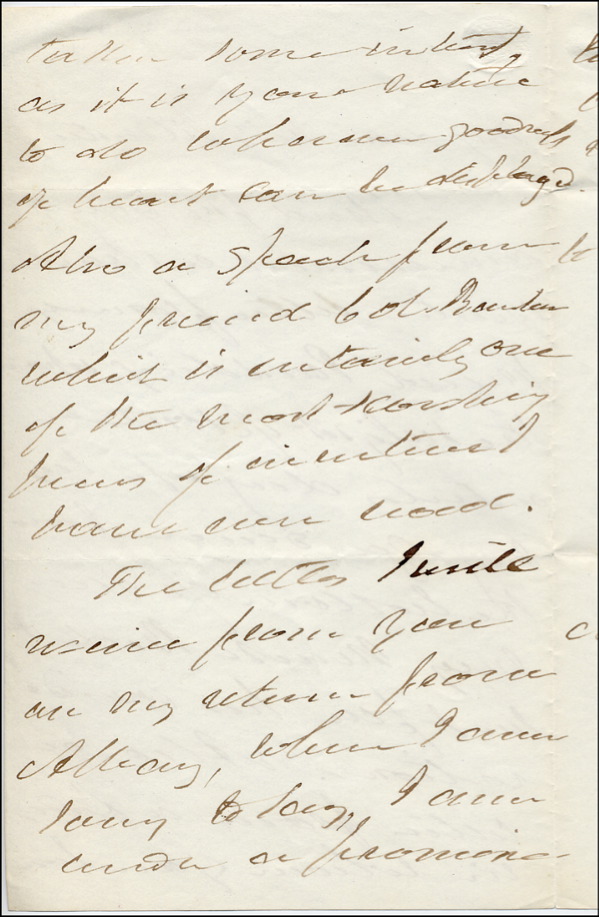 taken some interest,
as it is your nature
to do whenever goodness
of heart can be displayed.
Also a Speech from
my friend Col.
which is certainly one
of the most
of invective I
have ever read.
The letter I will
receive from you
on my return from
Albany, where I am
sorry to say, I am
under a promise